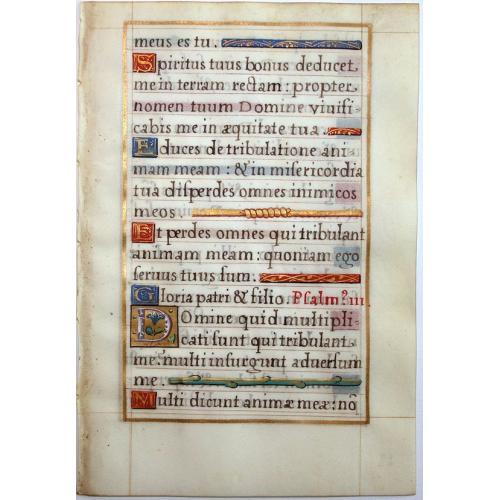 meus es tu.
Spiritus tuus bonus deducet
me in terram rectam: propter
nomen tuum Domine viuifi
cabis me in æquitate tua.
Educes de tribulatione ani
mam meam: & in misericordia
tua disperdes omnes inimicos
meos.
Et perdes omnes qui tribulant
animam meam: quoniam ego
seruus tuus sum.
Gloria patri & filio. Psalm⁹ iii
Domine quid multipli
cati sunt qui tribulant
me: multi insurgunt aduersum
me.
Multi dicunt animæ meæ: nō